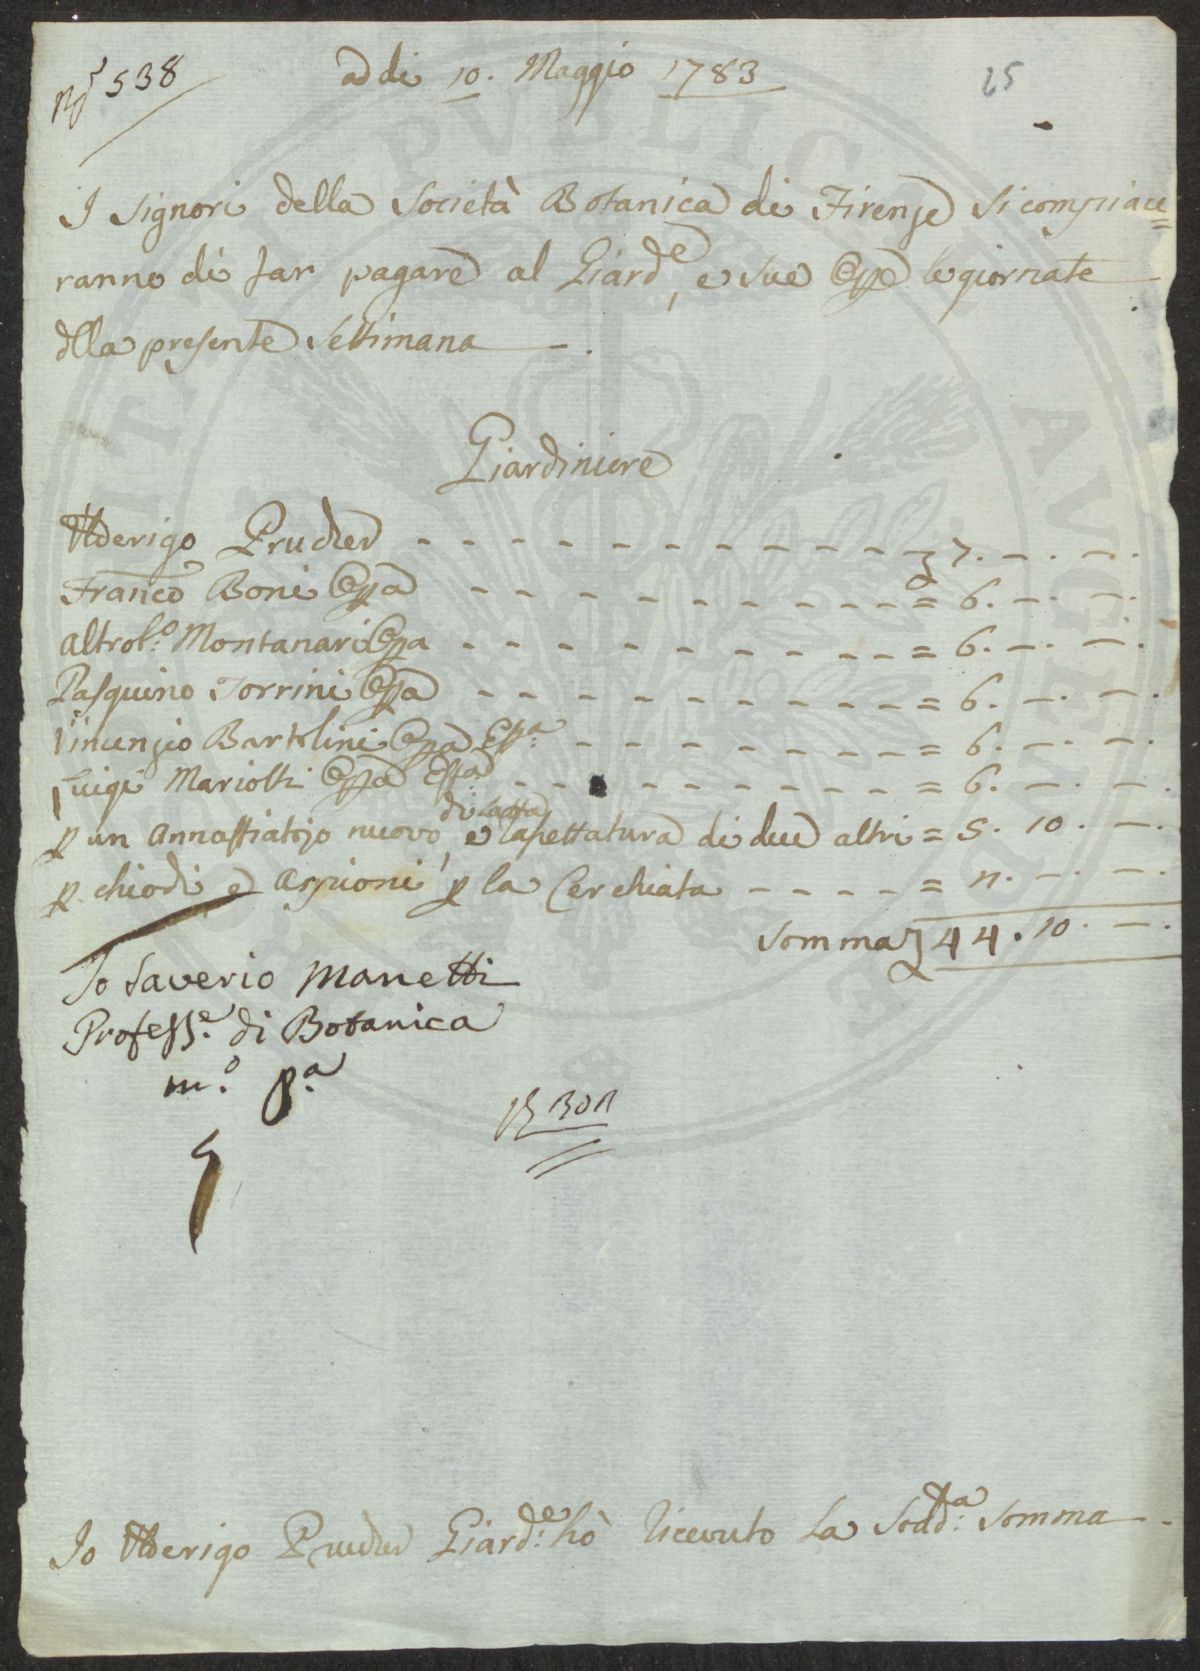 No 538
a di 10. Maggio 1783
25
I Signori della Società Botanica di Firenze si compiace=
ranno di far pagare al Giard.e, e sue Opp.e le giornate
dlla presente Settimana — .
Giardiniere
Uderigo Prucher - - - - - - - - - - - £ 7. — . — .
Fran.co Boni Oppa - - - - - - - - - = 6. — . — .
altro L.o Montanari Oppa - - - - - - - - - = 6. — . — .
Pasquino Torrini Oppa - - - - - - - - - = 6. — . — .
Vincenzio Bartolini Oppa Ess.a - - - - - - - = 6. — . — .
Luigi Mariotti Oppa Ess.a - - - - - - - = 6. — . — .
di latta
p un annaffiatojo nuovo e rapettatura di due altri = 5. 10. — .
p chiodi, e arpioni p la Cerchiata - - - - = 2. — . — .
Somma £ 44. 10. — .
Io Saverio Manetti
Profess.e di Botanica
m.o p.a
Io Uderigo Prucher Giard.e hò ricevuto La Sod.a Somma — .